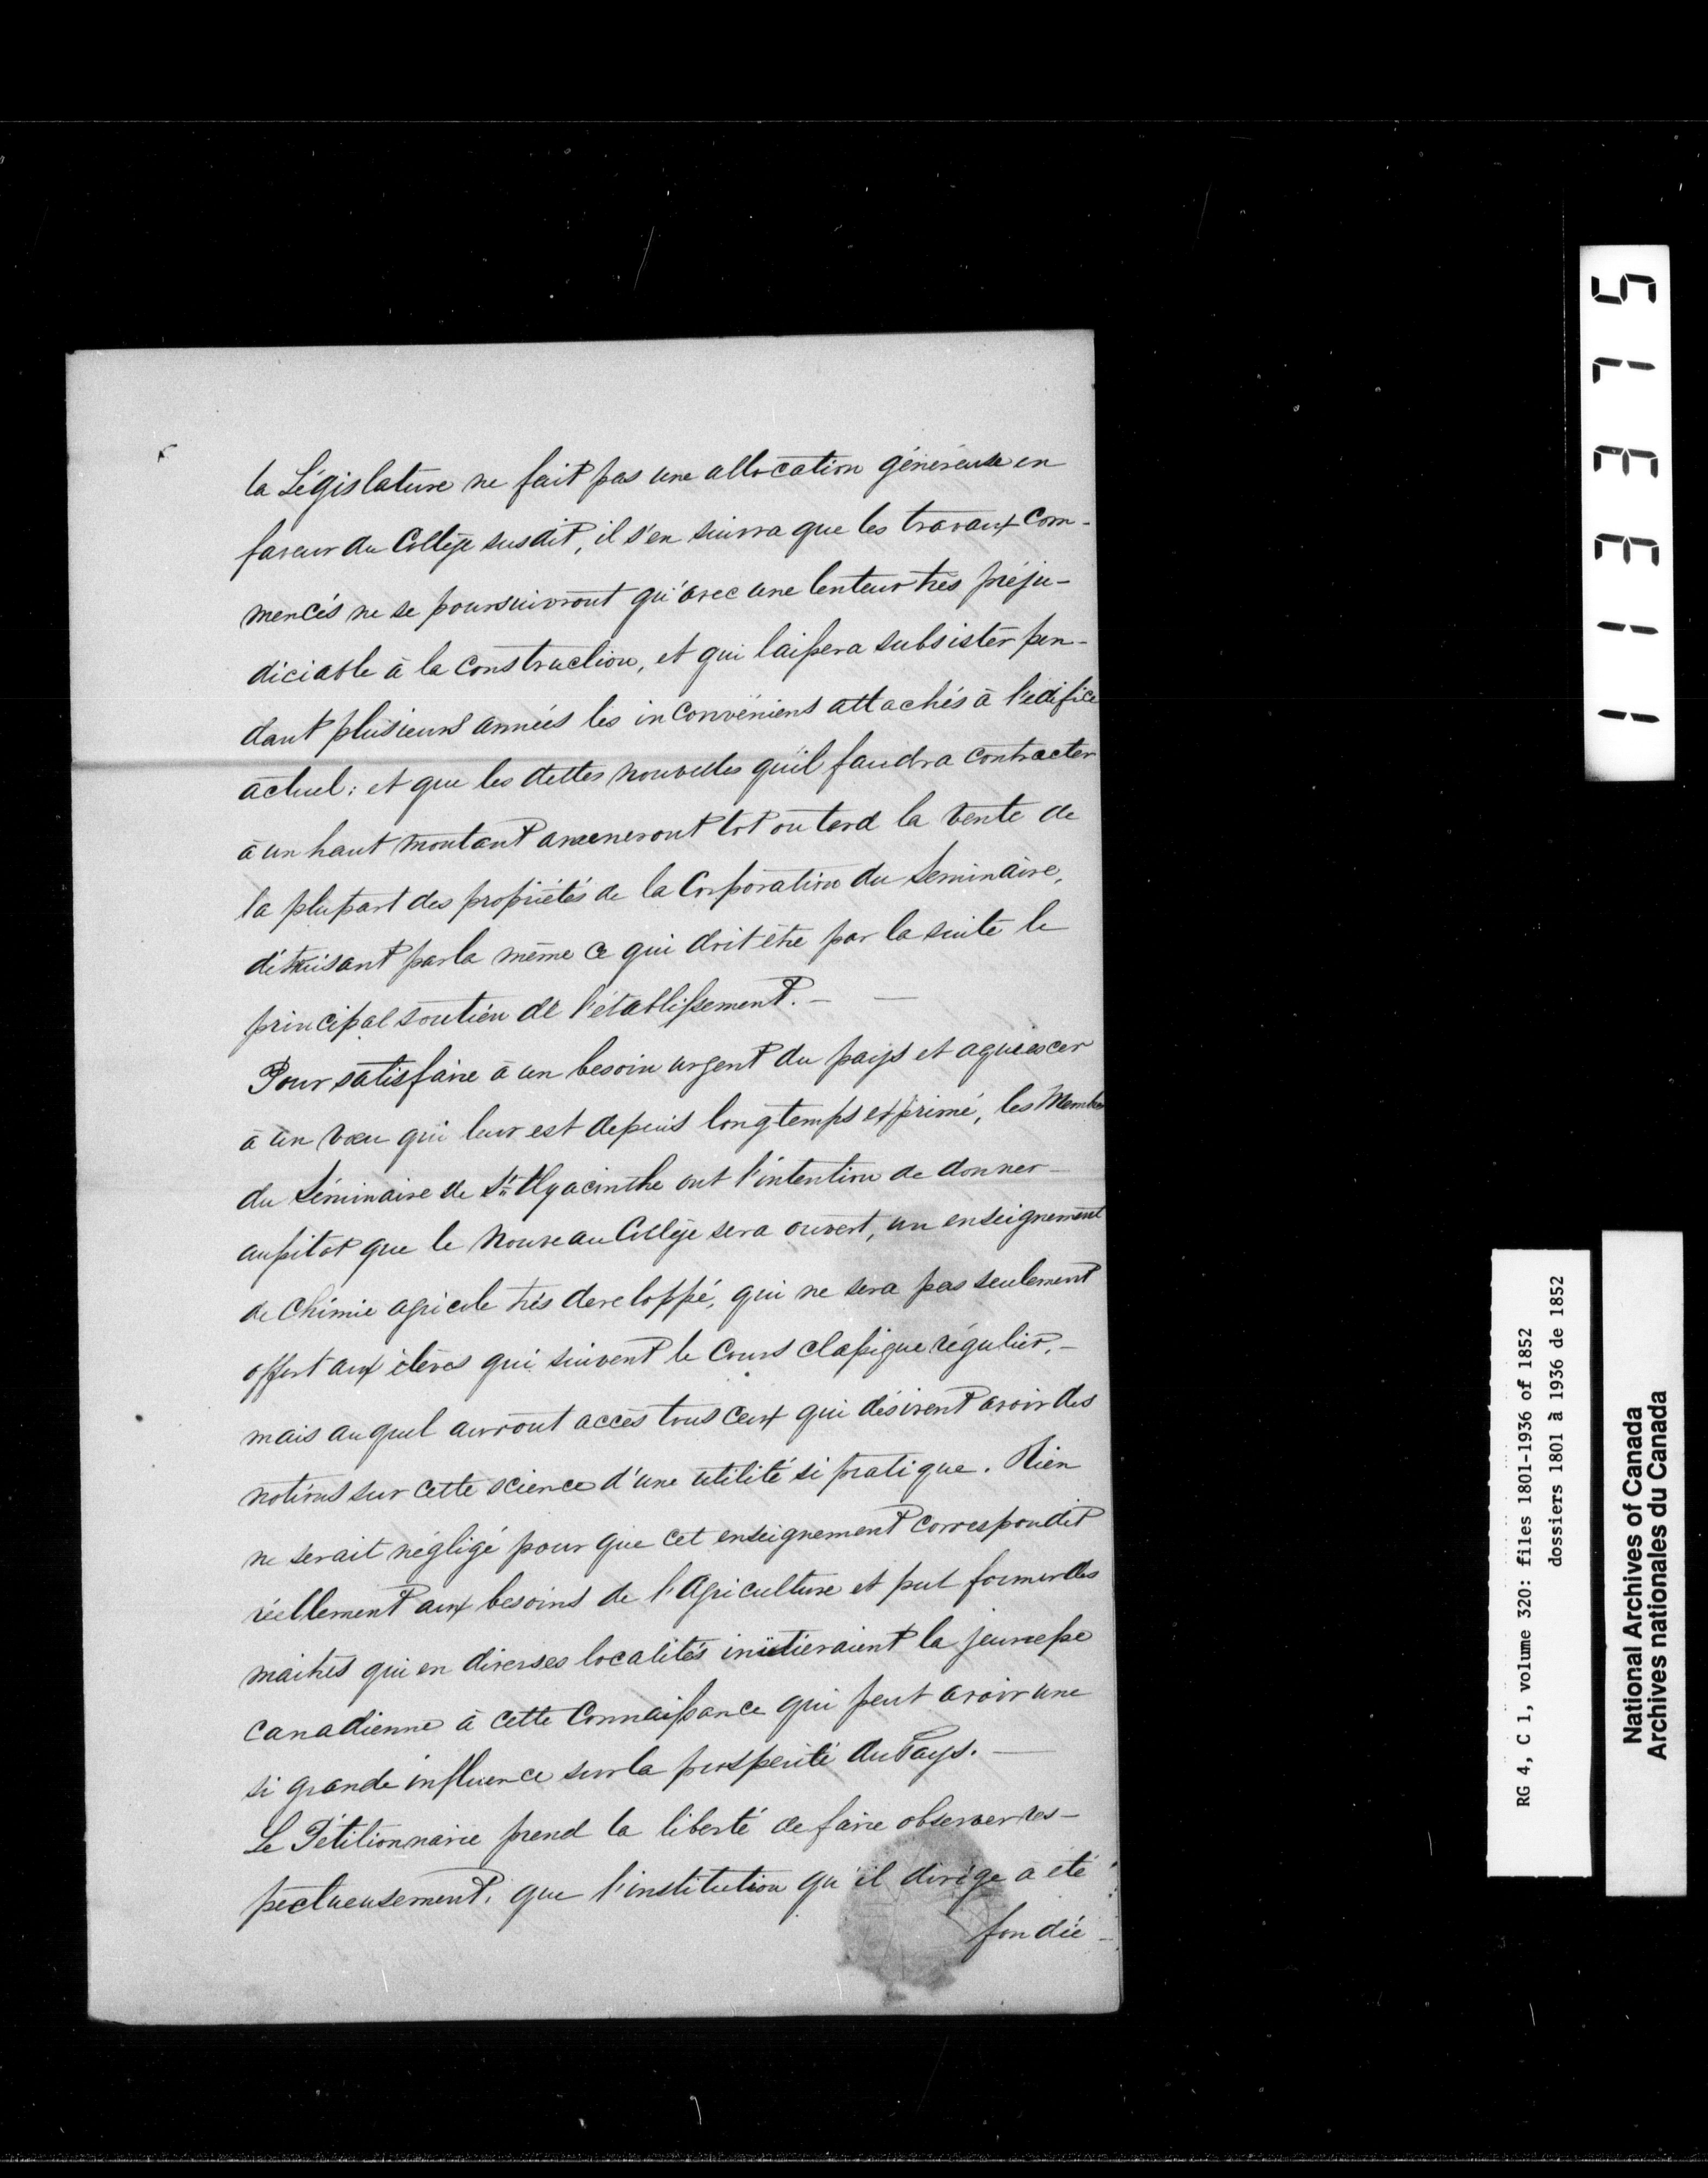 la Législature ne fait pas une allocation généreuse en
faveur du Collége susdit, il s'en suivra que les travaux com-
mencés ne se poursuivront qu'avec une lenteur très préju-
diciable à la construction, et qui laissera subsister pen-
dant plusieurs années les inconvéniens attachés à l'édifice
actuel: et que les dettes nouvelles qu'il faudra contracter
à un haut montant ameneront tot ou tard la vente de
la plupart des propriétés de la Corporation du Seminaire,
détruisant par la même ce qui doit être par la suite le
principal soutien de l'établissement. — —
Pour satisfaire à un besoin urgent du pays et aquiescer
à un vœu qui leur est depuis longtemps exprimé, les Membres
du Séminaire de St. Hyacinthe ont l'intention de donner —
aussitot que le nouveau Collége sera ouvert, un enseignement
de Chimie agricole très developpé, qui ne sera pas seulement
offert aux élèves qui suivent le Cours classique régulier, —
mais auquel auront accès tous ceux qui désirent avoir des
notions sur cette science d'une utilité si pratique. Rien
ne serait négligé pour que cet enseignement correspondit
réellement aux besoins de l'Agriculture et put former des
maitres qui en diverses localités initieraient la jeunesse
canadienne à cette Connaissance qui peut avoir une
si grande influence sur la prosperité du Pays. —
Le Pétitionnaire prend la liberté de faire observer res-
pectueusement, que l'institution qu'il dirige a été
fondée —
113375
RG 4, C 1, volume 320: files 1801-1936 of 1852
dossiers 1801 à 1936 de 1852
National Archives of Canada
Archives nationales du Canada